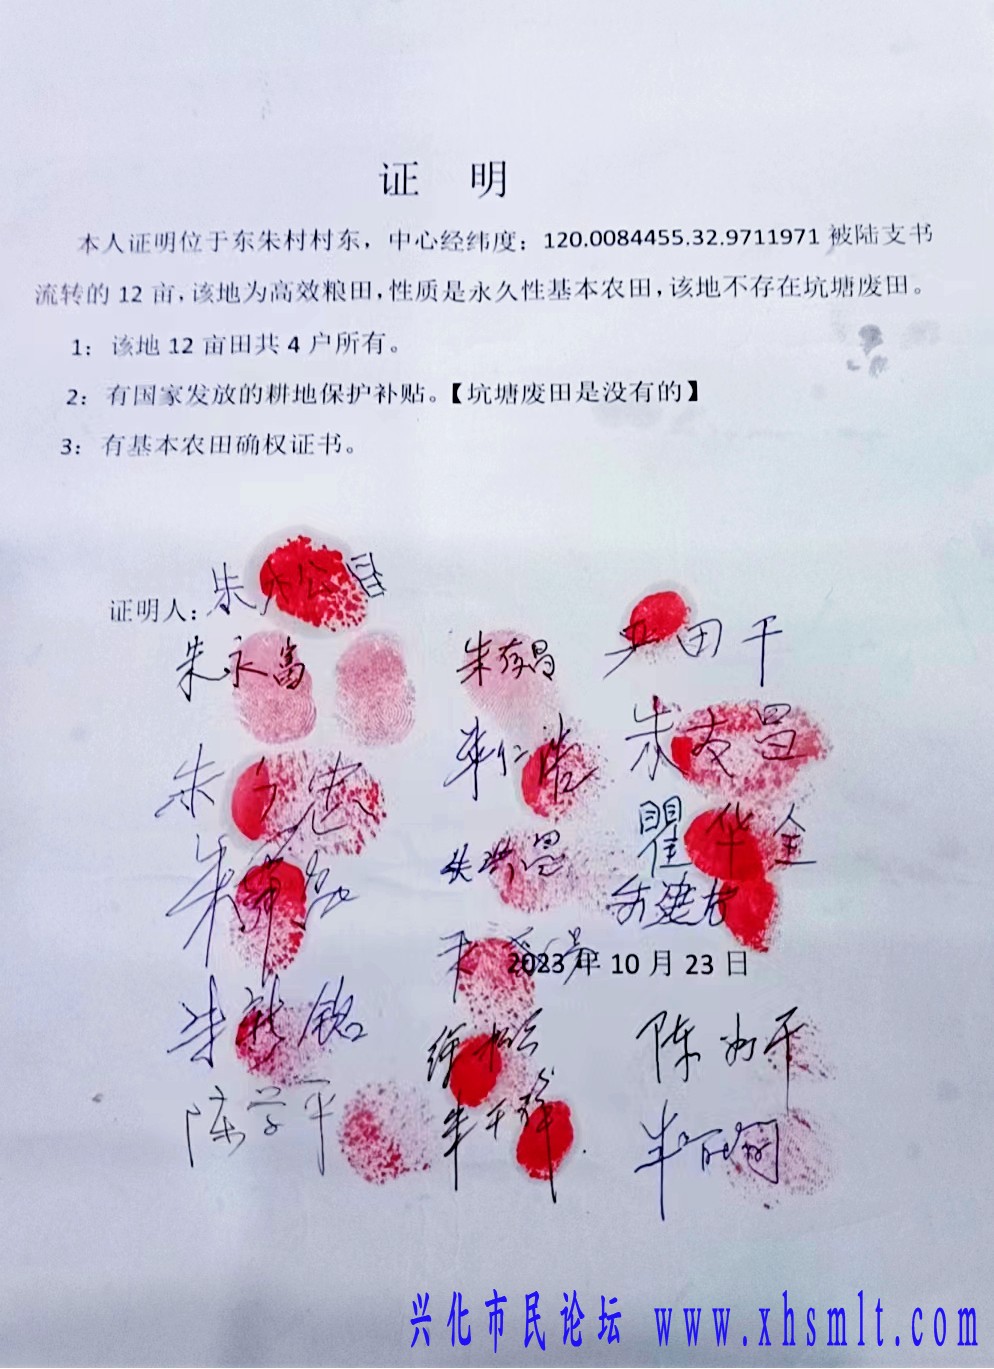 证 明
本人证明位于东朱村村东，中心经纬度：120.0084455.32.9711971被陆支书
流转的12亩，该地为高效粮田，性质是永久性基本农田，该地不存在坑塘废田。
1：该地12亩田共4户所有。
2：有国家发放的耕地保护补贴。【坑塘废田是没有的】
3：有基本农田确权证书。
证明人：朱 松昌
朱永富 朱存昌 田干
朱 忠 朱仁 朱友昌
朱 昌 瞿华全
朱 建
2023年10月23日
朱 铭 徐 陈 干
陈学平 朱干群 朱
兴化市民论坛 www.xhsmlt.com